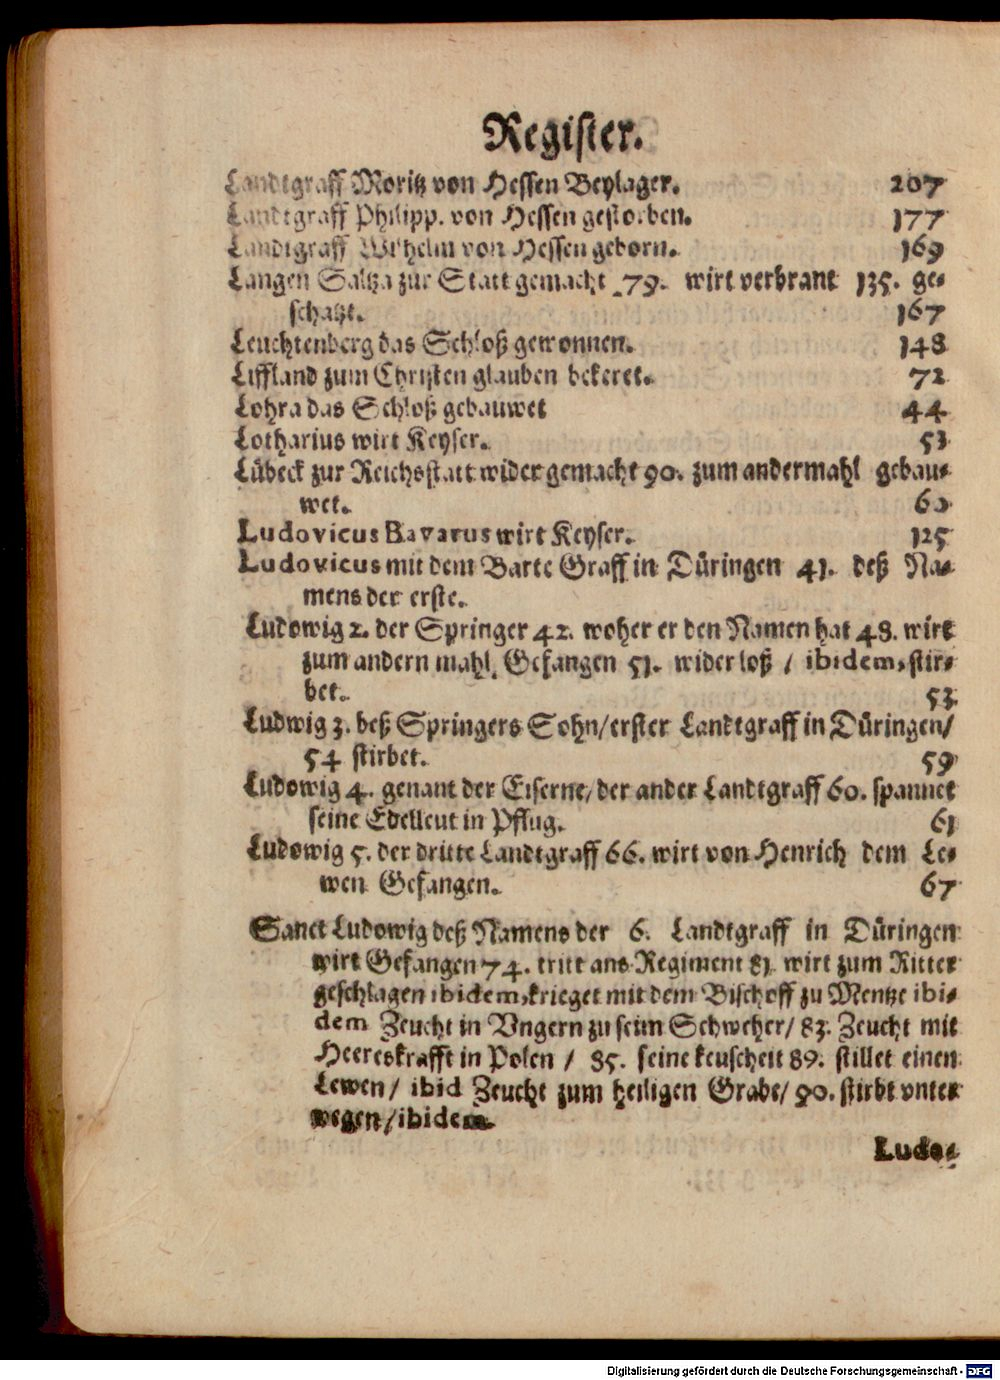 Register.
Landtgraff Moritz von Hessen Beylager. 207
Landtgraff Philipp. von Hessen gestorben. 177
Landtgraff Wilhelm von Hessen geborn. 169
Langen Saltza zur Statt gemacht 79. wirt verbrant 135. ge-
schatzt. 167
Leuchtenberg das Schloß gewonnen. 148
Liffland zum Christen glauben bekeret. 72
Lohra das Schloß gebauwet 44
Lotharius wirt Keyser. 53
Lübeck zur Reichsstatt wider gemacht 90. zum andermahl gebau-
wet. 60
Ludovicus Bavarus wirt Keyser. 125
Ludovicus mit dem Barte Graff in Düringen 41. deß Na-
mens der erste.
Ludowig 2. der Springer 42. woher er den Namen hat 48. wirt
zum andern mahl Gefangen 51. wider loß / ibidem, stir-
bet. 53
Ludwig 3. deß Springers Sohn/ erster Landtgraff in Düringen/
54 stirbet. 59
Ludowig 4. genant der Eiserne/ der ander Landtgraff 60. spannet
seine Edelleut in Pflug. 61
Ludowig 5. der dritte Landtgraff 66. wirt von Henrich dem Le-
wen Gefangen. 67
Sanct Ludowig deß Namens der 6. Landtgraff in Düringen
wirt Gefangen 74. tritt ans Regiment 81 wirt zum Ritter
geschlagen ibidem, krieget mit dem Bischoff zu Mentze ibi-
dem Zeucht in Vngern zu seim Schweher/ 83. Zeucht mit
Heereskrafft in Polen / 85. seine keuscheit 89. stillet einen
Lewen/ ibid Zeucht zum heiligen Grabe/ 90. stirbt vnter
wegen/ ibidem.
Ludo-
Digitalisierung gefördert durch die Deutsche Forschungsgemeinschaft - DFG